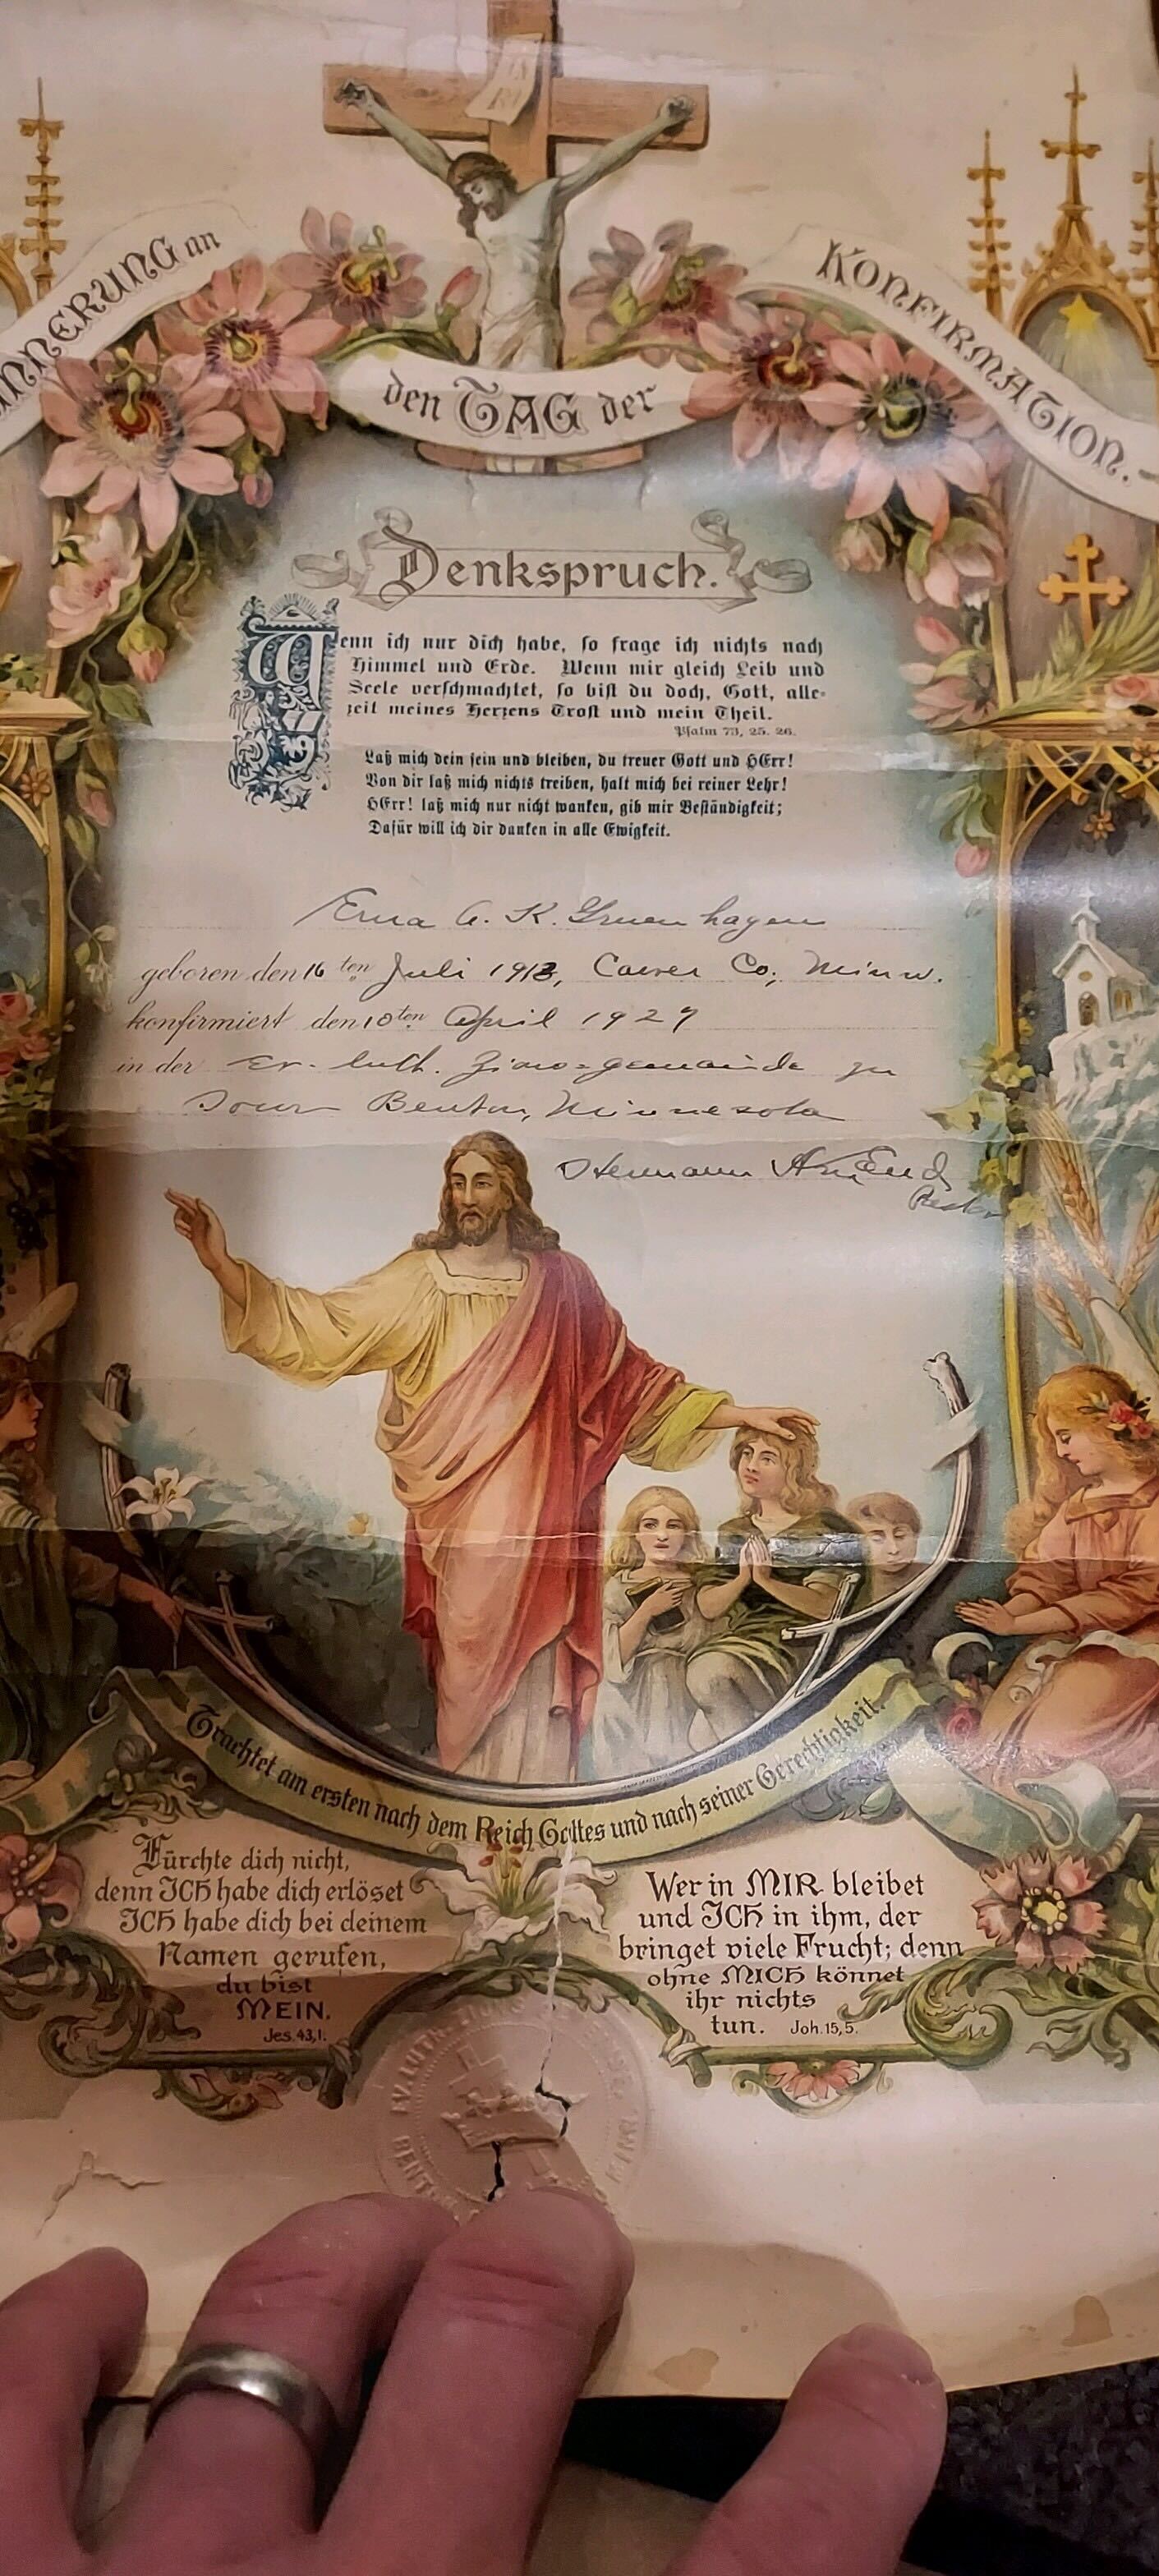 NNERUNG an
den TAG der
KONFIRMATION.
Denkspruch.
Wenn ich nur dich habe, so frage ich nichts nach
Himmel und Erde. Wenn mir gleich Leib und
Seele verschmachtet, so bist du doch, Gott, alle-
zeit meines Herzens Trost und mein Theil.
Psalm 73, 25. 26.
Laß mich dein sein und bleiben, du treuer Gott und HErr!
Von dir laß mich nichts treiben, halt mich bei reiner Lehr!
HErr! laß mich nur nicht wanken, gib mir Beständigkeit;
Dafür will ich dir danken in alle Ewigkeit.
Erna A. K. Gruenhagen
geboren den 16ten Juli 1913, Carver Co; Minn.
konfirmiert den 10ten April 1927
in der Ev. luth. Zions-gemeinde zu
Town Benton, Minnesota
Hermann
Pastor
Trachtet am ersten nach dem Reich Gottes und nach seiner Gerechtigkeit.
Fürchte dich nicht,
denn ICH habe dich erlöset
ICH habe dich bei deinem
Namen gerufen,
du bist
MEIN.
Jes. 43,1.
Wer in MIR bleibet
und ICH in ihm, der
bringet viele Frucht; denn
ohne MICH könnet
ihr nichts
tun. Joh. 15,5.
EV. LUTH.